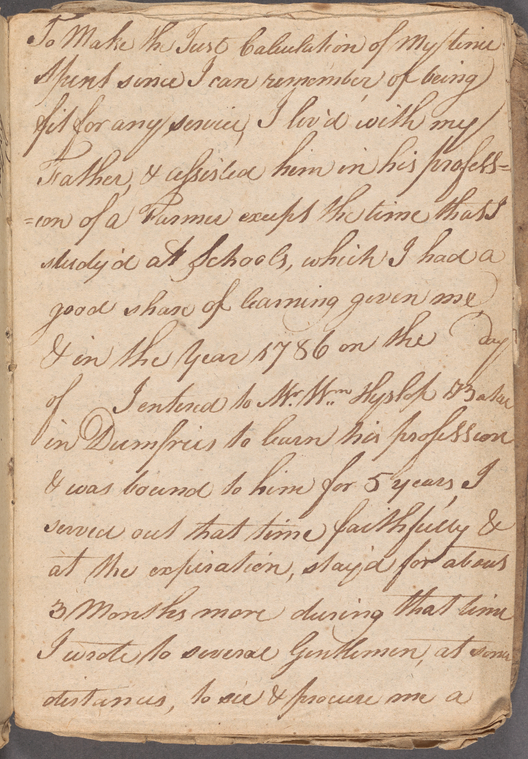 To Make the Just Calculation of My time
Spent since I can remember, of being
fit for any service, I liv'd with my
Father, & assisted him in his profess=
=ion of a Farmer except the time that I
study'd att Schools, which I had a
good share of learning given me
& in the Year 1786 on the day
of I entered to Mr. Wm. Hyslop Baker
in Dumfries to learn his profession
& was bound to him for 5 years, I
served out that time faithfully &
at the expiration, stay'd for about
3 Months more during that time
I wrote to several Gentlemen, at some
distances, to see & procure me a